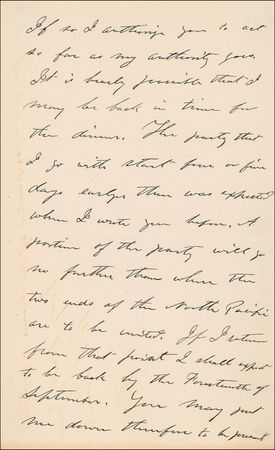 If so I authorize you to act
so far as my authority goes.
It is barely possible that I
may be back in time for
the dinner. The party that
I go with start four or five
days earlyer than was expected
when I wrote you before. A
portion of the party will go
no further than where the
two ends of the North Pacific
are to be united. If I return
from that point I shall expect
to be back by the Fourteenth of
September. You may put
me down therefore to be present